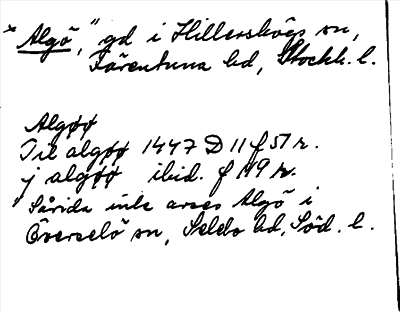 * Algö," gd i Hillershögs sn,
Färentuna hd, Stockh. l.
Algøø
Til algøø 1447 D 11 f 51 r.
j algøø ibid. f 119 r.
" Såvida inte avses Algö i
Överselö sn, Selebo hd, Söd. l.